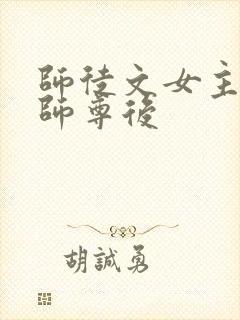 師徒文女主
師尊後
胡誠勇